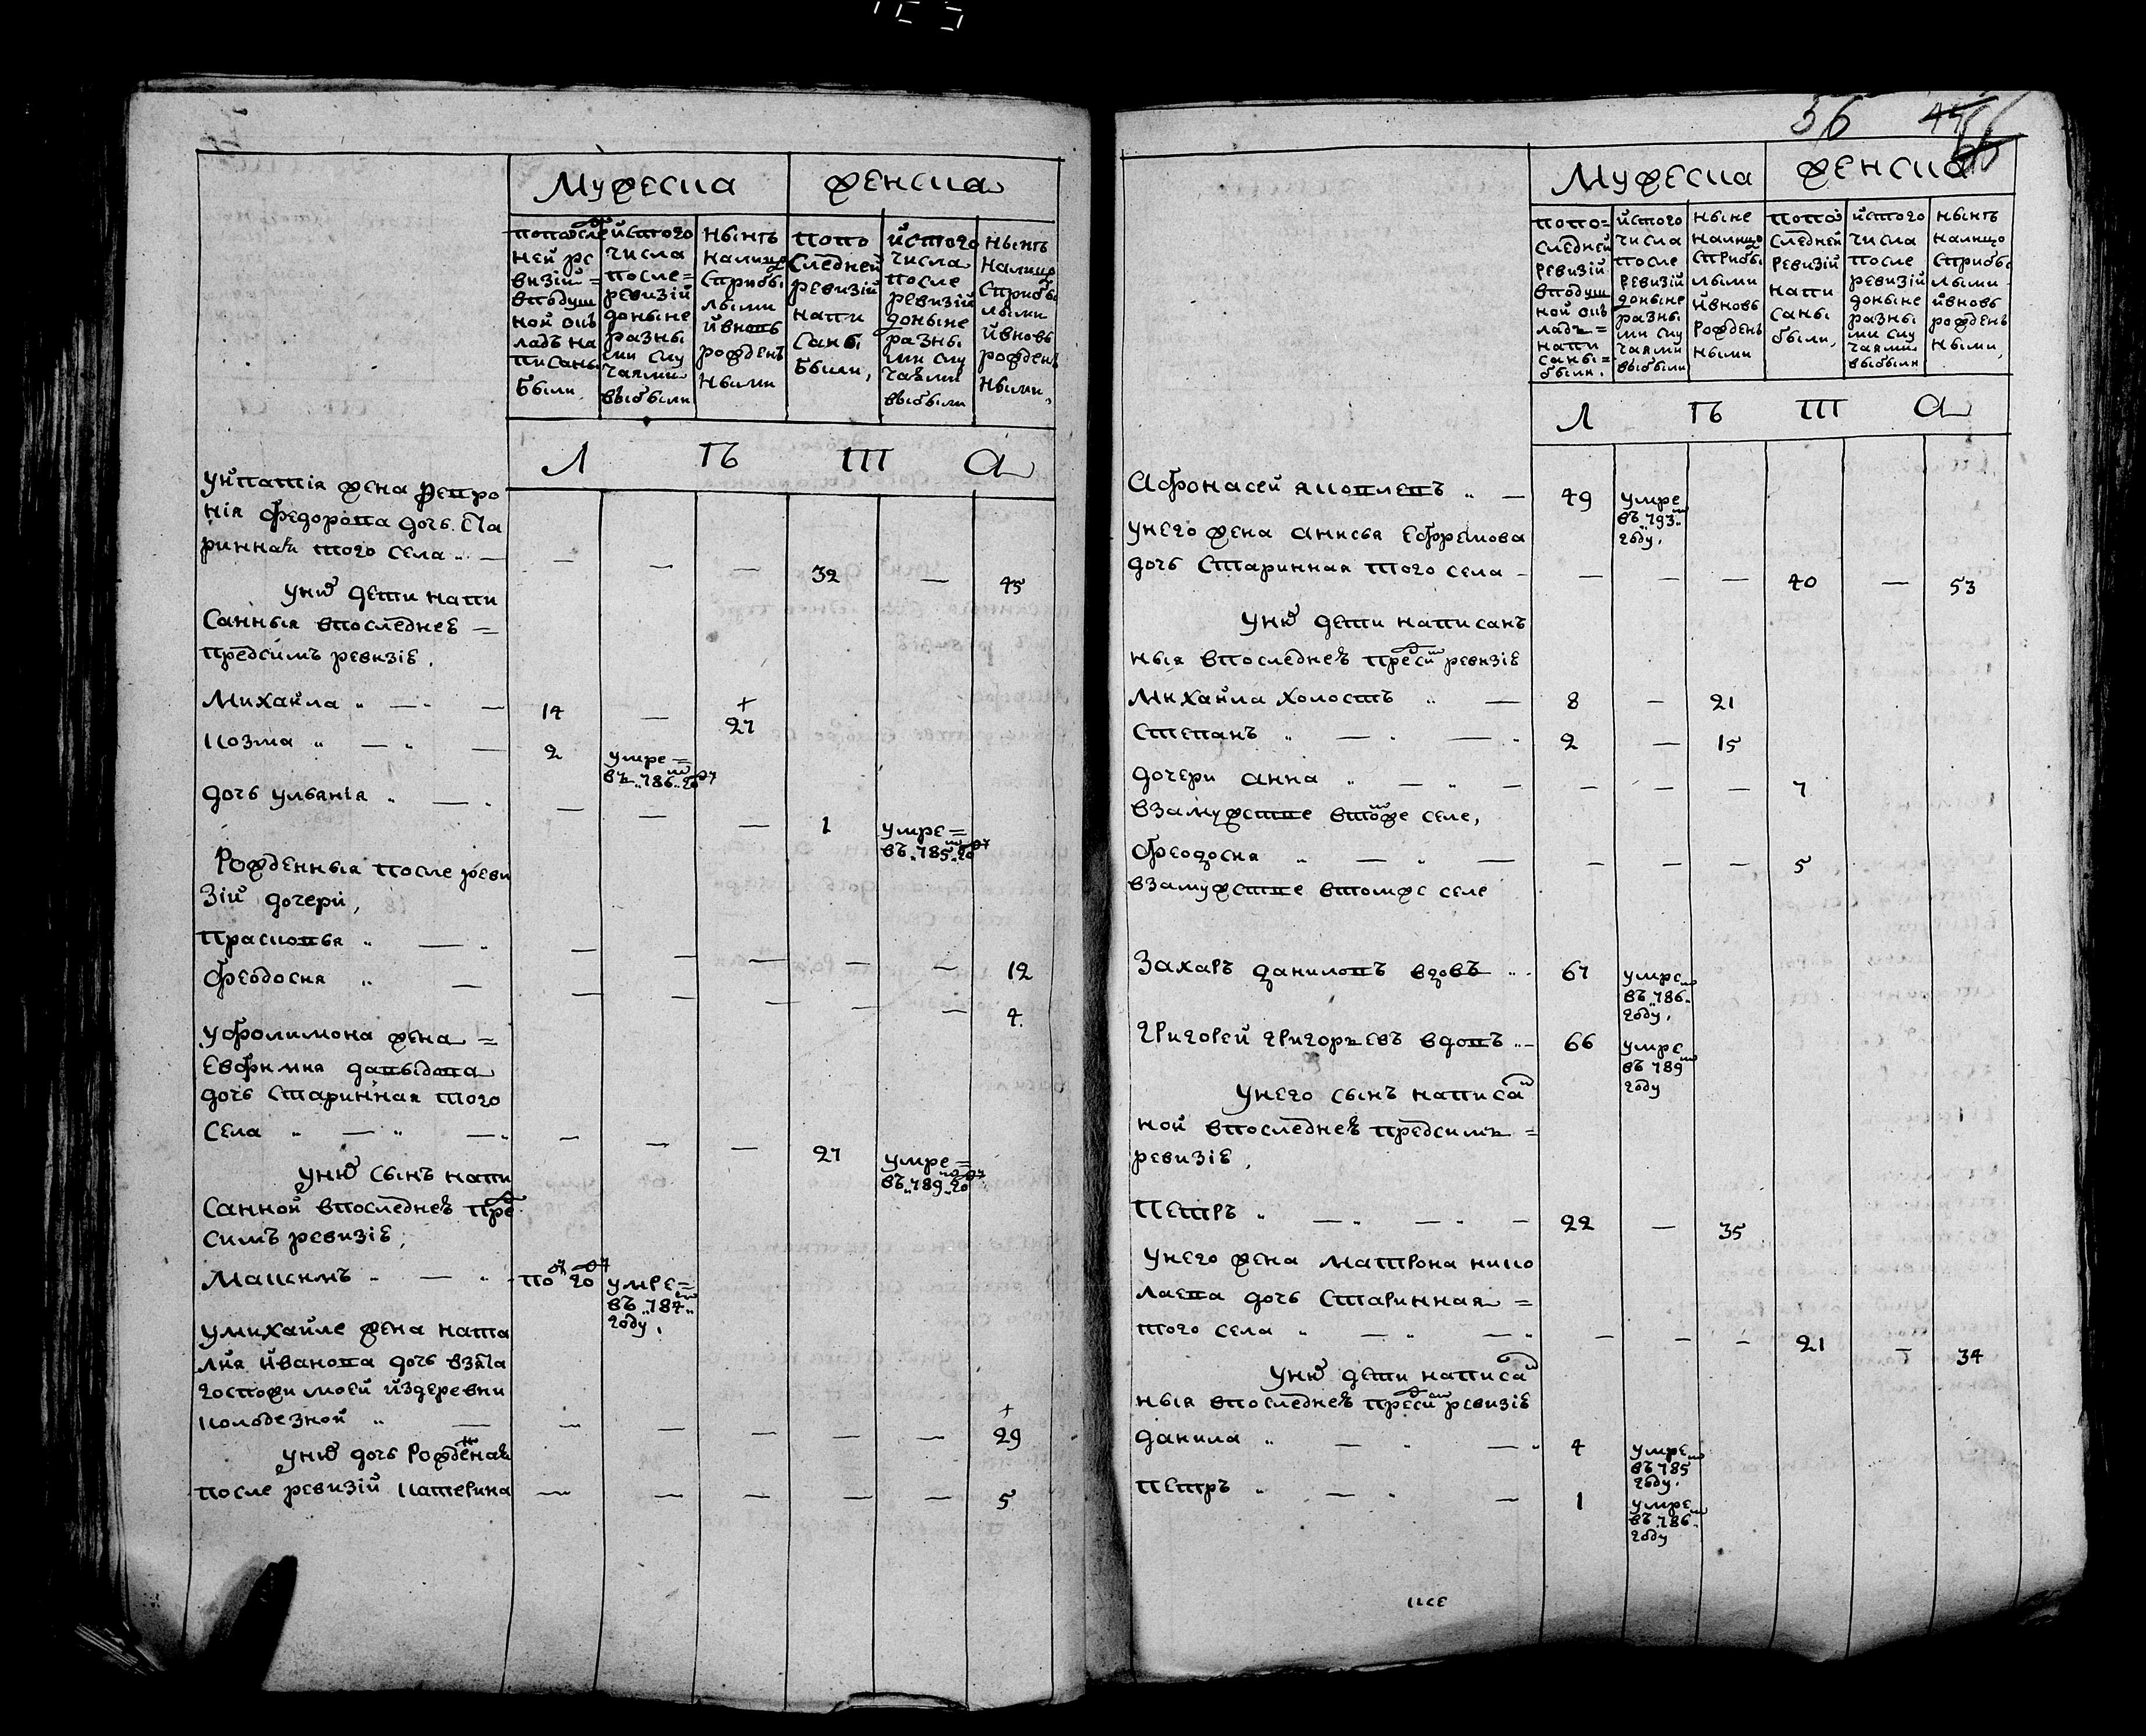 56 44 66
Мужеска женска
попослед
ней ре
визій =
вподуш
ной ок
ладъ на
писаны
были
йстого
числа
после=
ревизій
доныне
разны
ми слу
чаями
выбыли
ныне
налицо
сприбы
лыми
йвновь
рожден
ными
попо
следней
ревизій
напи
саны
были,
йстого
числа
после
ревизій
доныне
разны
ми слу
чаями
выбыли
ныне
налицо
сприбы
лыми
йвновь
рожден
ными,
Л Ѣ Т А
уипатія жена
нія федорова дочь Ста
ринная того села „ —
— — — 32 — 45
унӥ дети напи
Санныя впоследнеѣ =
предсимъ ревизіѣ,
Михайла „ — — 14 — + 27
Козма „ — „ — 2 умре= въ „786„ году
дочь ульянія „ — „ — — — 1 умре= въ „785„ году
Рожденныя после реви
зій дочери,
Прасковья „ — „ — — — — — 12
Феодосия „ — — — — — — 4.
уфолимона жена =
Евфимия давыдова
дочь Старинная того
села „ — „ — „ — — — 27 умре= въ „789„ году
унӥ сынъ напи
санной впоследнеѣ пред
симъ ревизіѣ,
Максимъ „ — „ полгода умре= въ „787„ году,
умихайле жена ната
лия йванова дочь взята
госпожи моей издеревни
колодезной „ — — — — — — + 29
унӥ дочь Рожденая
после ревизій Катерина — — — — — 5
Мужеска женска
попо=
следней
ревизій
вподуш
ной ок
ладъ =
напи
саны=
были.
йстого
числа
после
ревизій
доныне
разны
ми слу
чаями
выбыли
ныне
налицо
сприбы
лыми
йвновь
рожден
ными
попо
следней
ревизій
напи
саны
были,
йстого
числа
после
ревизій
доныне
разны
ми слу
чаями
выбыли
ныне
налицо
сприбы
лыми
йвновь
рожден
ными,
Л Ѣ Т А
Афонасей яковлевъ „ — 49 умре въ „793„ году.
унего жена анисья Ефремова
дочь Старинная того села — — — — 40 — 53
унӥ дети написан
ныя впоследнеѣ пред сим ревизіѣ
Михайла холостъ „ — 8 — 21
Степанъ „ — „ — „ 2 — 15
дочери анна „ — „ — — — — 7
взамужстве втомже селе,
Феодосия „ — „ — — — — 5
взамужстве втомже селе
Захаръ даниловъ вдовъ „ 67 умре въ „786„ году,
Григорей григорьевъ вдовъ „ 66 умре въ 789 году
унего сынъ написан
ной впоследнеѣ предсимъ =
ревизіѣ,
Петръ „ — „ — „ — 22 — 35
унего жена матрона нико
лаева дочь Старинная =
того села „ — „ — „ — — — 21 — 34
унӥ дети написан
ныя впоследнеѣ пред сим ревизіѣ
данила „ — „ — „ 4 умре въ 785 году.
Петръ „ — „ — 1 умре въ „786„ году